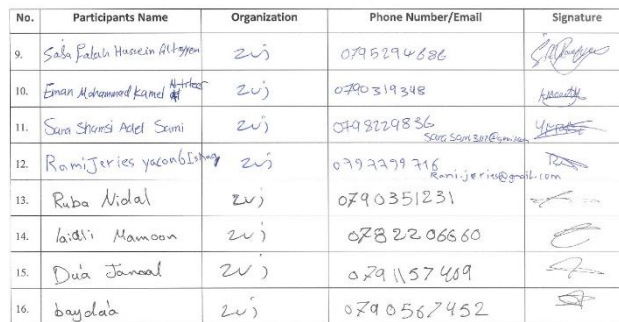 No. Participants Name Organization Phone Number/Email Signature
9. Saba Falah Hussein zuj 0795294686
10. Eman Mohammad Kamel zuj 0790319348
11. Sara Shamsi Adel Sami zuj 0798229836
12. Rami Jeries yacoub zuj 0797799716
Rami.jeries@gmail.com
13. Ruba Nidal zuj 0790351231
14. Mamoon zuj 0782206660
15. Dua'a zuj 0791157409
16. baydaa zuj 0790567452